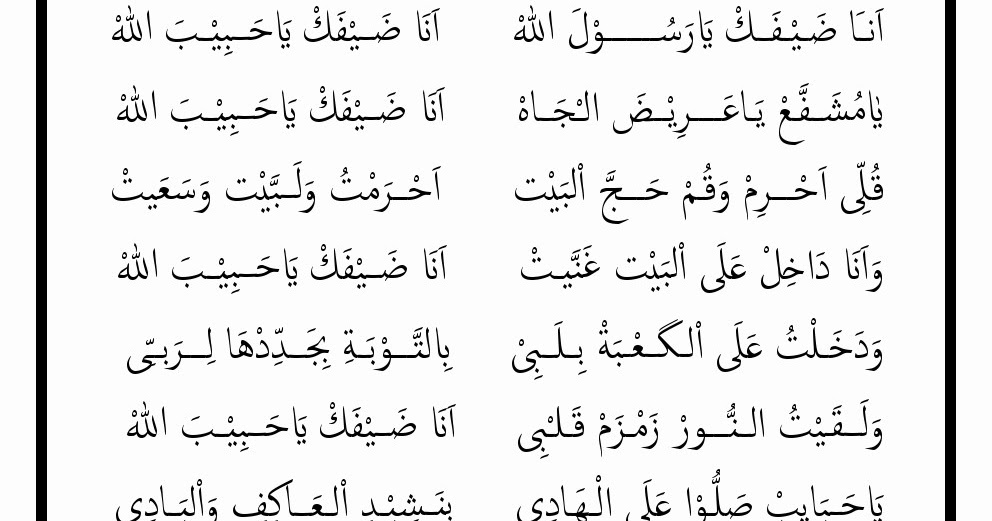 اَنَا ضَيْفَكْ يَارَسُوْلَ اللهْ اَنَا ضَيْفَكْ يَاحَبِيْبَ اللهْ
يٰامُشَفَّعْ يَاعَرِيْضَ الْجَاهْ اَنَا ضَيْفَكْ يَاحَبِيْبَ اللهْ
قُلِّى اَحْرِمْ وَقُمْ حَجَّ اْلبَيْت اَحْرَمْتُ وَلَبَّيْت وَسَعَيتْ
وَاَنَا دَاخِلْ عَلَى اْلبَيْت غَنَّيتْ اَنَا ضَيْفَكْ يَاحَبِيْبَ اللهْ
وَدَخَلْتُ عَلَى اْلكَعْبَةْ بِلَبِىْ بِالتَّوْبَةِ بِجَدِّدْهَا لِرَبّى
وَلَقَيْتُ النُّورْ زَمْزَمْ قَلْبِى اَنَا ضَيْفَكْ يَاحَبِيْبَ اللهْ
يَاحَبَايِبْ صَلُّوْا عَلَى الْهَادِى بِنَشِيْدِ اْلعَاكِفِ وَاْلبَادِى